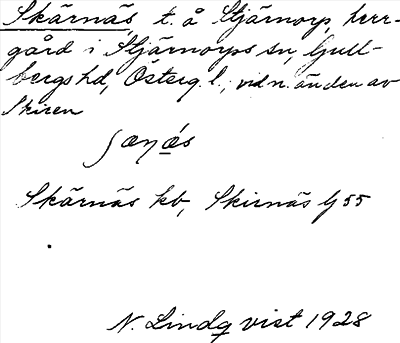 Skärnäs, t. å Stjärnorp, herr-
gård i Stjärnorps sn, Gull-
bergs hd, Österg. l., vid n. änden av
Skiren
Skärnäs kb, Skirnäs G 55
N. Lindqvist 1928